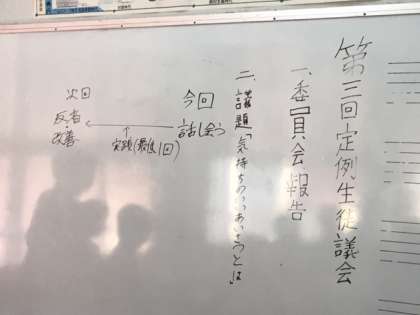 第三回定例生徒議会
一、委員会報告
二、議題「気持ちのいいあいさつとは」
今回
話し合う
実践(最低1回)
次回
反省
改善